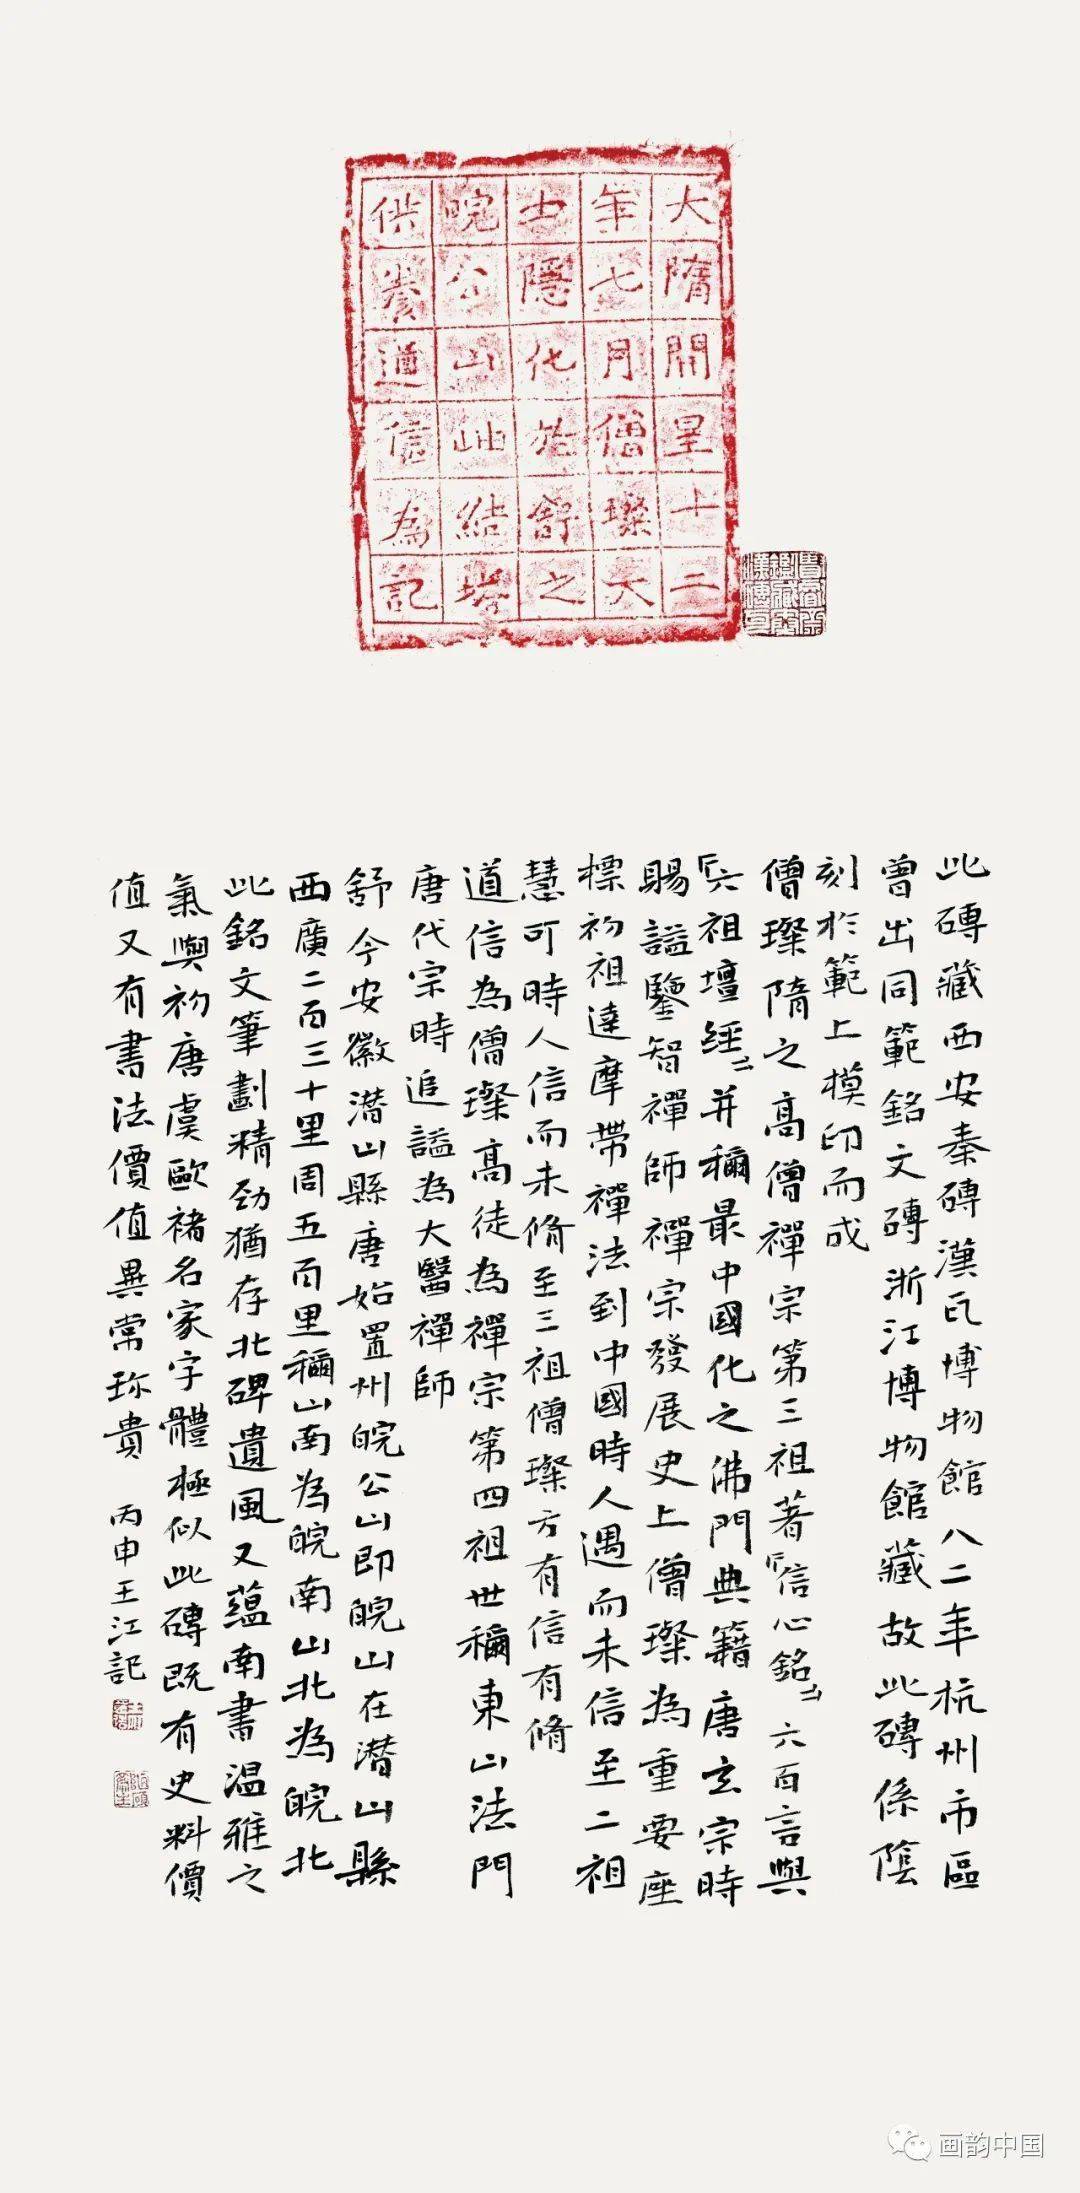 大隋開皇十二
年七月僧璨大
士隱化於舒之
皖公山岫結塔
供養道信為記
此磚藏西安秦磚漢瓦博物館八二年杭州市區
曾出同範銘文磚浙江博物館藏故此磚係陰
刻於範上模印而成
僧璨隋之高僧禪宗第三祖著『信心銘』六百言與
『六祖壇經』并稱最中國化之佛門典籍唐玄宗時
賜謚鑒智禪師禪宗發展史上僧璨為重要座
標初祖達摩帶禪法到中國時人遇而未信至二祖
慧可時人信而未脩至三祖僧璨方有信有脩
道信為僧璨高徒為禪宗第四祖世稱東山法門
唐代宗時追謚為大醫禪師
舒今安徽潛山縣唐始置州皖公山即皖山在潛山縣
西廣二百三十里周五百里稱山南為皖南山北為皖北
此銘文筆劃精勁猶存北碑遺風又蘊南書溫雅之
氣與初唐虞歐褚名家字體極似此磚既有史料價
值又有書法價值異常珍貴 丙申王江記
画韵中国